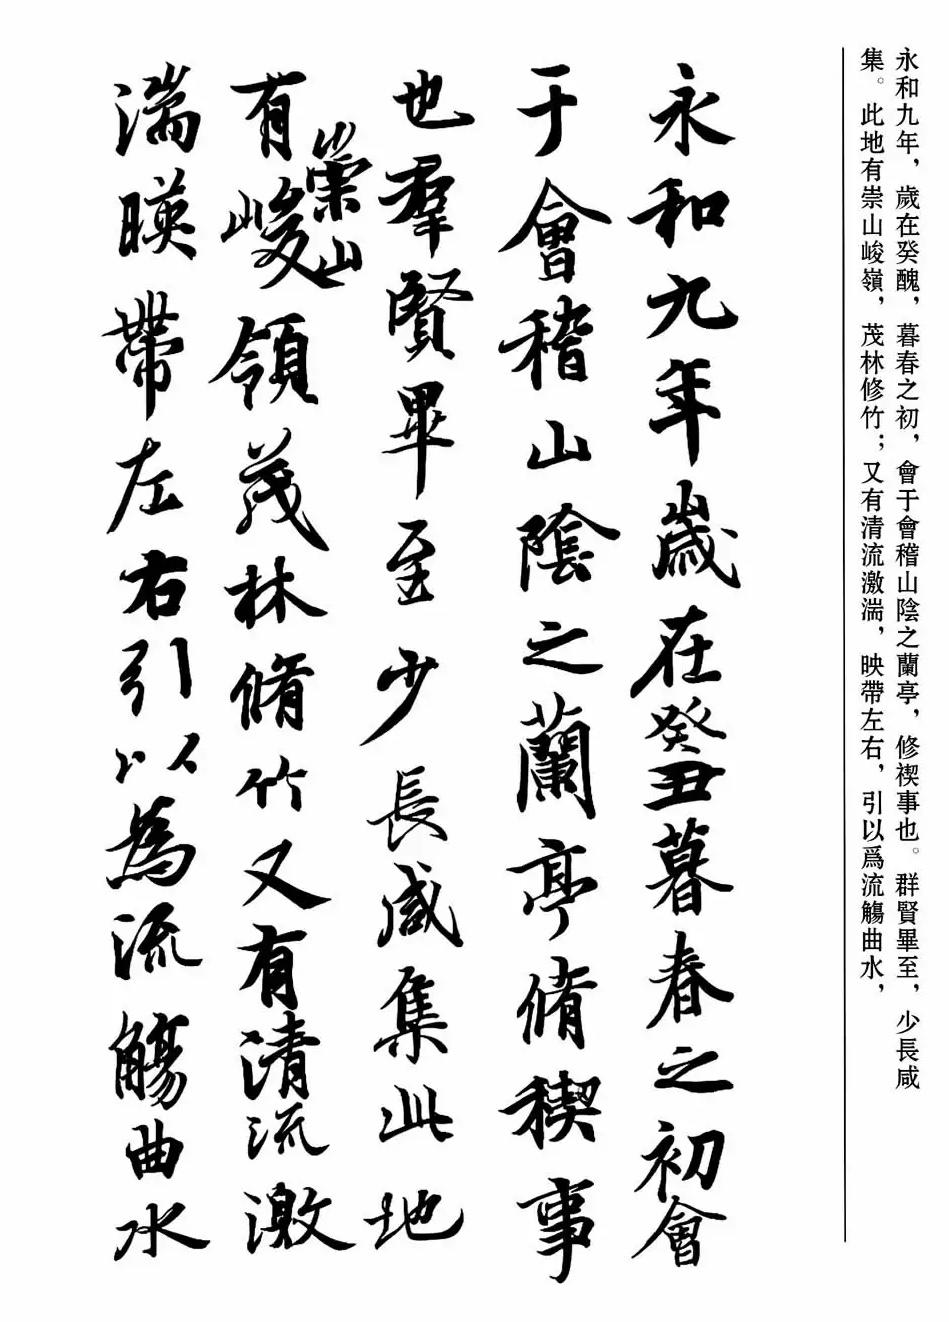 永和九年，歲在癸醜，暮春之初，會于會稽山陰之蘭亭，修禊事也。群賢畢至，少長咸
集。此地有崇山峻嶺，茂林修竹；又有清流激湍，映帶左右，引以爲流觴曲水，
永和九年歲在癸丑暮春之初會
于會稽山陰之蘭亭脩稧事
也羣賢畢至少長咸集此地
有崇山峻領茂林脩竹又有清流激
湍暎帶左右引以為流觴曲水